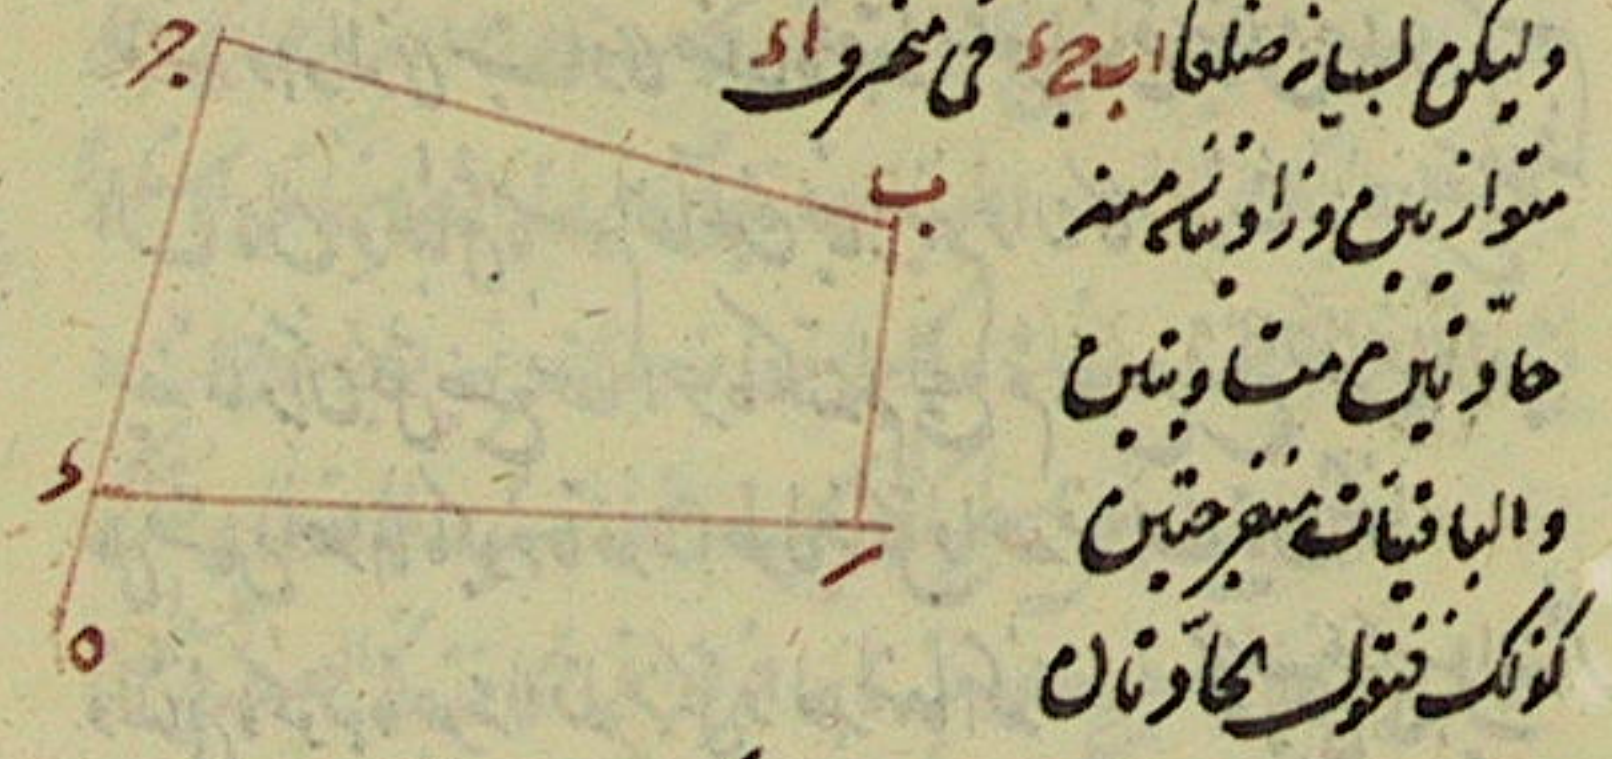 وليكن لبيانه ضلعا اب جء في منحرف اء
متوازيين وزاويتان منه
حادتين متساويتين
والباقيتان منفرجتين
كذلك فنقول الحادتان
جـ
ب
ء
ا
ه